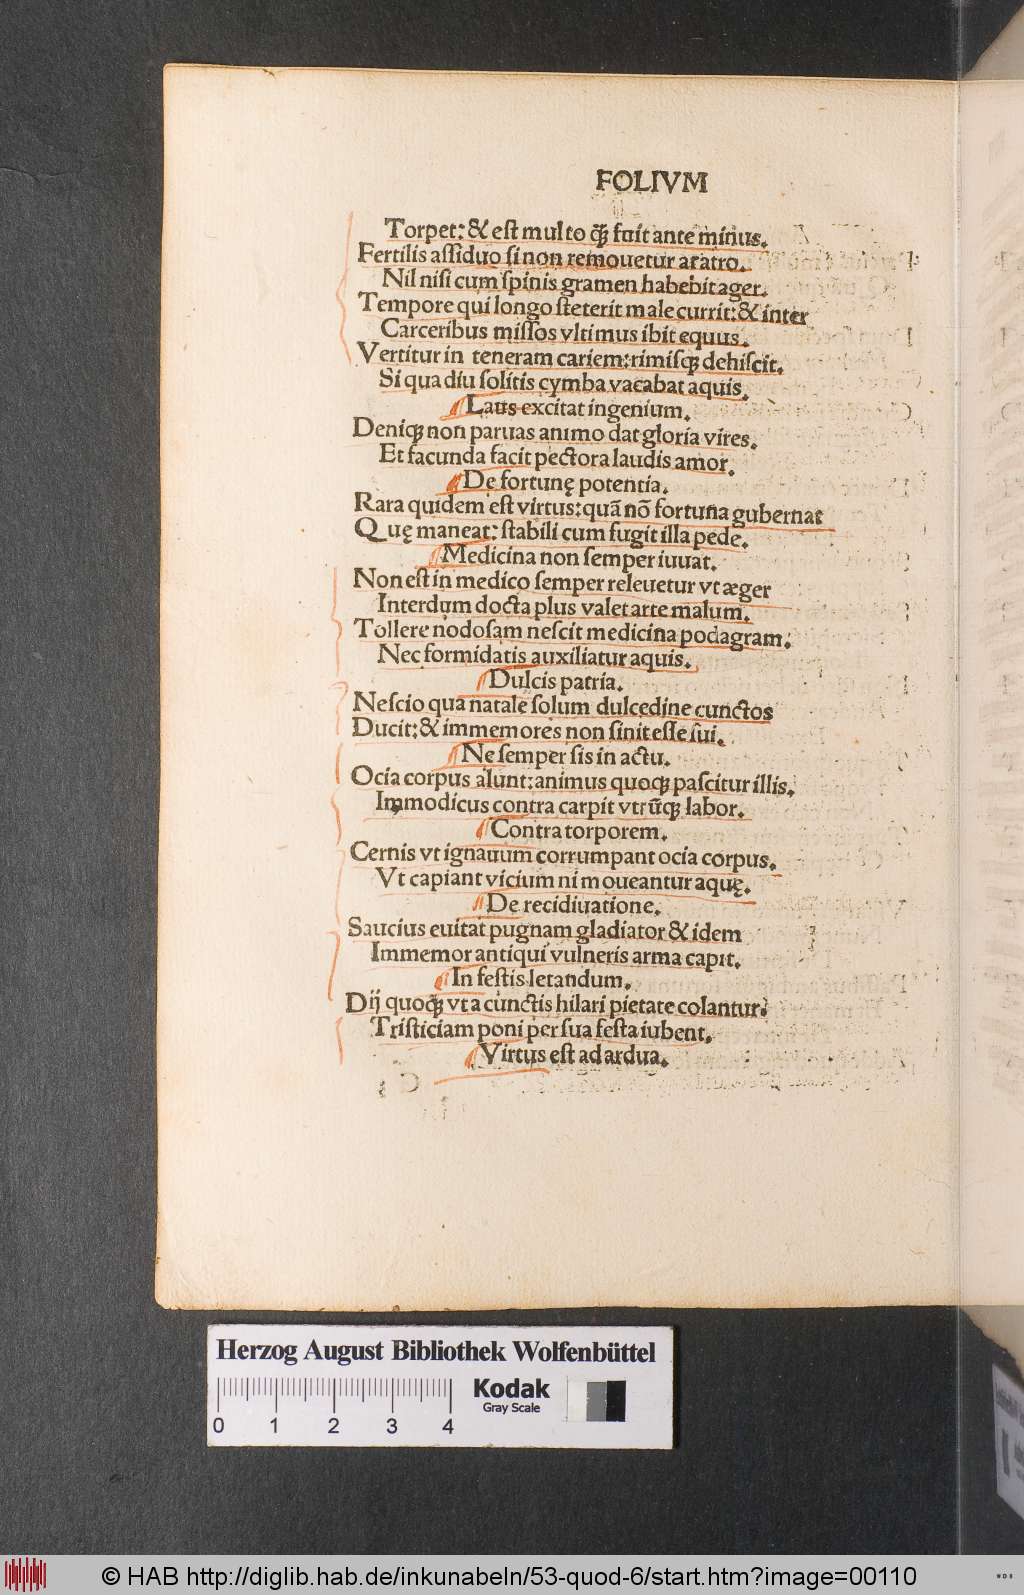 FOLIVM
Torpet: & est multo q̃ʒ fuit ante minus.
Fertilis assiduo si non remouetur aratro.
Nil nisi cum spinis gramen habebit ager.
Tempore qui longo steterit male currit: & inter
Carceribus missos vltimus ibit equus.
Vertitur in teneram cariem: rimisqʒ dehiscit.
Si qua diu solitis cymba vacabat aquis.
Laus excitat ingenium.
Deniqʒ non paruas animo dat gloria vires.
Et facunda facit pectora laudis amor.
De fortunę potentia.
Rara quidem est virtus: quã nõ fortuna gubernat
Quę maneat: stabili cum fugit illa pede.
Medicina non semper iuuat.
Non est in medico semper releuetur vt æger
Interdum docta plus valet arte malum.
Tollere nodosam nescit medicina podagram.
Nec formidatis auxiliatur aquis.
Dulcis patria.
Nescio qua natale solum dulcedine cunctos
Ducit: & immemores non sinit esse sui.
Ne semper sis in actu.
Ocia corpus alunt: animus quoqʒ pascitur illis.
Immodicus contra carpit vtrũqʒ labor.
Contra torporem.
Cernis vt ignauum corrumpant ocia corpus.
Vt capiant vicium ni moueantur aquę.
De recidiuatione.
Saucius euitat pugnam gladiator & idem
Immemor antiqui vulneris arma capit.
In festis letandum.
Dij quoqʒ vt a cunctis hilari pietate colantur:
Tristiciam poni per sua festa iubent.
Virtus est ad ardua.
Herzog August Bibliothek Wolfenbüttel
Kodak
Gray Scale
0 1 2 3 4
© HAB http://diglib.hab.de/inkunabeln/53-quod-6/start.htm?image=00110